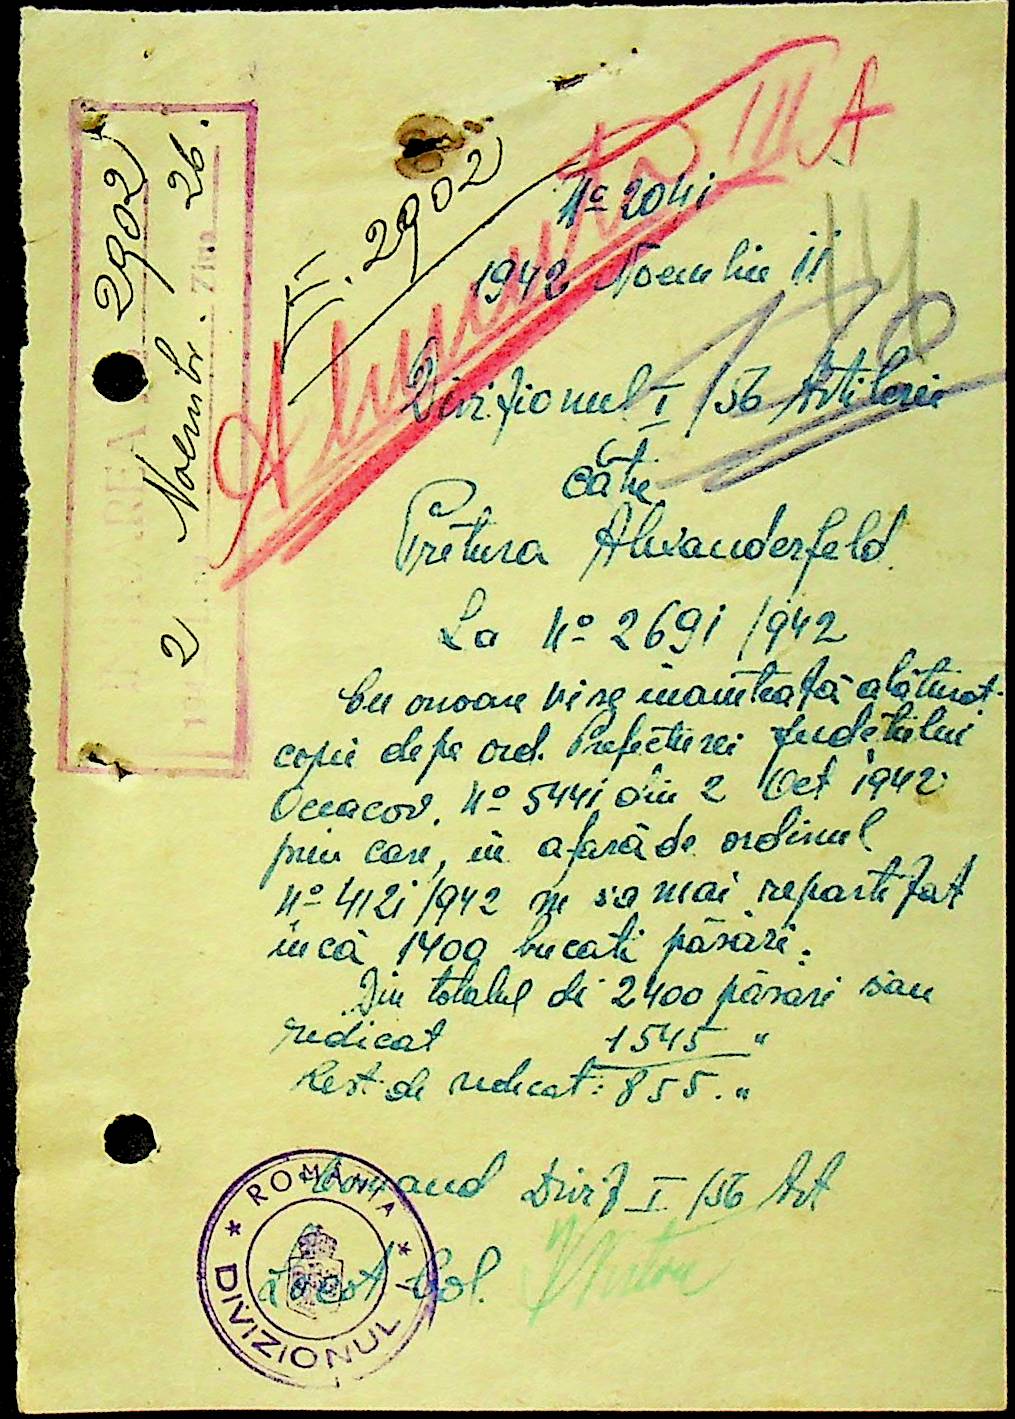 2902
2 Noembr. 26.
E. 2902
III A
Nº 2041
1942 Noembrie 11
Divizionul I/56 Artilerie
către
Prêtura Alexanderfeld
La Nº 2691/1942
Cu onoare vi se inaintează alăturat
copie depe ord. Prefecturei Județului
Oceacov. Nº 5441 din 2 Oct 1942
prin care, in afară de ordinul
Nº 4121/1942 ni sa mai repartizat
incă 1400 bucati păsări.
Din totalul de 2400 păsari sau
redicat 1545 "
Rest de redicat: 855. "
Comand Diviz I/56 Art
Locot Col.
* ROMÂNIA *
DIVIZIONUL